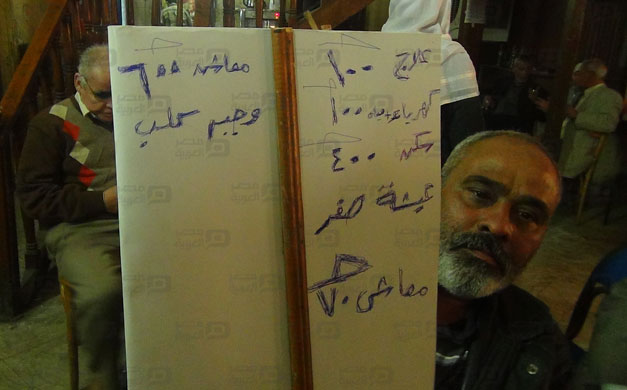 علاج ١٠٠
كهرباء ومياه ١٠٠
سكن ٤٠٠
عيشة صفر
معاشي ٧٠
معاش ٦٠٠
مصر العربية